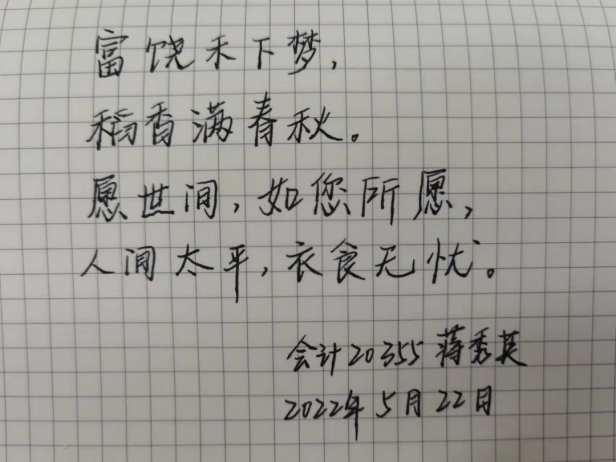 富饶禾下梦，
稻香满春秋。
愿世间，如您所愿，
人间太平，衣食无忧。
会计20355 蒋秀英
2022年5月22日